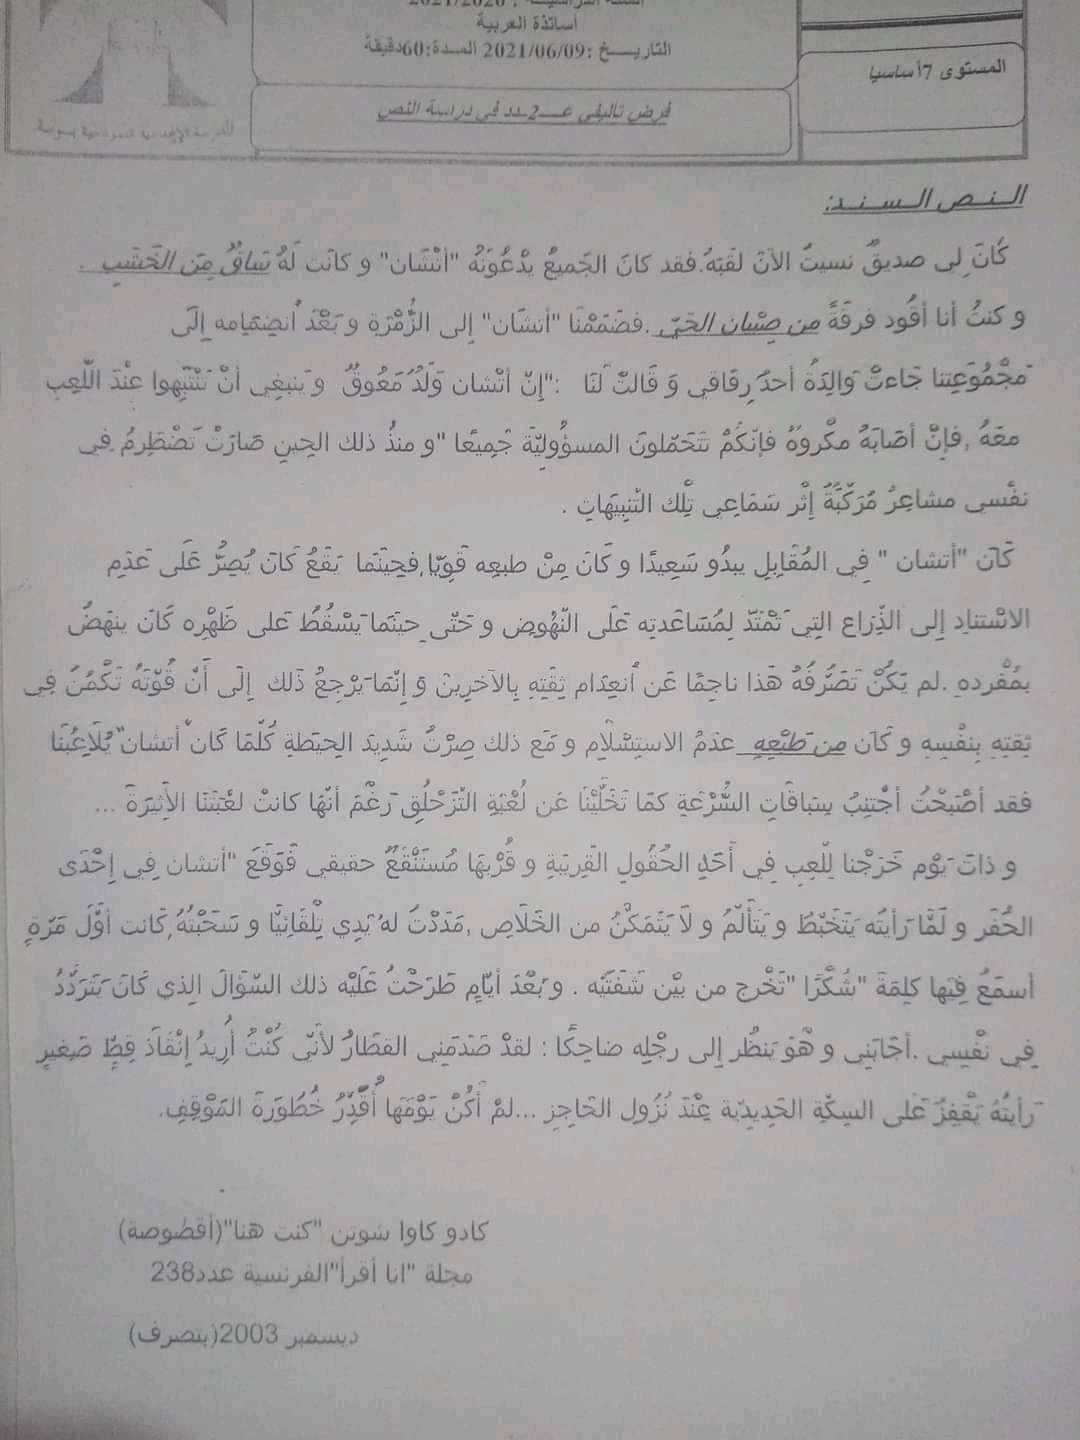 السنة الدراسية : 2021/2020
أساتذة العربية
التاريخ :2021/06/09 المدة:60دقيقة
المستوى 7أساسيا
فرض تاليفي عـــ2ـدد في دراسة النص
النص السند:
كَانَ لِي صديقٌ نسيتُ الآنَ لقَبَهُ.فقد كانَ الجَميعُ يدْعُونَهُ "أتْشَان" و كانَت لَهُ سَاقٌ مِنَ الخَشَبِ .
و كنتُ أنا أقُود فرقَةً من صِبْيان الحَيّ .فضَمَمْنَا "أتشَان" إلى الزُّمْرَةِ و بَعْدَ انضِمَامه إِلَى
مَجْمُوَعِتنا جَاءتْ وَالِدَةُ أحدِ رِفَاقي وَ قَالتْ لَنَا :"إنّ أتْشان وَلَدٌ مَعُوقٌ و يَنبغِي أنْ تَنْتَبِهوا عنْدَ اللّعِبِ
معَهُ ,فإنْ أصَابَهُ مكْروهٌ فإنّكُمْ تتَحَمّلونَ المسؤُوليّةَ جَمِيعًا "و منذُ ذلك الحِينِ صَارَتْ تَضْطَرِمُ فِي
نفْسي مشاعِرُ مُرَكّبَةٌ إثْر سَمَاعِي تِلْك التّنبِيهَاتِ .
كَانَ "أتشان " فِي المُقَابِلِ يبدُو سَعِيدًا و كَانَ مِنْ طبعِه قَوِيّا,فحِينَمَا يَقَعُ كَانَ يُصِرُّ عَلَى عَدَمِ
الاسْتنادِ إلى الذِّرَاع التِي تَمْتَدّ لِمُسَاعَدتِه عَلَى النّهُوضِ و حَتّى حِينَما يَسْقُطُ عَلى ظَهْرِه كَانَ ينهَضُ
بمُفْرده .لم يَكُنْ تَصَرُّفُهُ هَذا ناجِمًا عَن انعِدَام ثِقَتِهِ بِالآخرِينَ وَ إنّمَا يَرْجِعُ ذَلك إلَى أنّ قُوّتَهُ تَكْمُنُ فِي
ثِقتِهِ بِنفْسِهِ و كَانَ من طَبْعِهِ عدَمُ الاستِسْلَامِ و مَع ذلك صِرْتُ شَدِيدَ الحِيَطةِ كُلّمَا كَان "أتشان" يُلَاعِبُنَا
فقد أصْبَحْتُ أجْتنِبُ سِبَاقَاتِ السُّرْعَةِ كمَا تَخَلّيْنَا عَن لُعْبَةِ التّزَحْلُقِ رَغْمَ أنّهَا كانتْ لعْبَتَنَا الأثِيرَةَ ...
و ذاتَ يَوْم خَرَجْنا للّعِبِ فِي أحَدِ الحُقُولِ القَرِيبَةِ و قُرْبهَا مُسْتَنْقَعٌ حقيقي فَوَقَعَ "أتشان فِي إحْدَى
الحُفَر و لَمَّا رَأيتُه يَتَخَبّطُ و يَتَألّمُ و لَا يَتَمَكّنُ من الخَلَاصِ ,مَدَدْتُ لهُ يَدِي تِلْقَائِيًّا و سَحَبْتُهُ,كَانت أوَّلَ مَرّةٍ
أسمَعُ فِيهَا كلِمَةَ "شُكْرًا "تَخْرج من بيْن شَفَتَيْه . و بَعْدَ أيّامٍ طَرَحْتُ عَلَيْه ذلك السّؤَالَ الذِي كَانَ يَتَرَدَّدُ
فِي نفْسِي .أجَابَنِي و هُوَ يَنظُر إلى رجْلِه ضاحِكًا : لقدْ صَدَمَنِي القطَارُ لأنّي كُنْتُ أُرِيدُ إنْقَاذَ قِطٍّ صَغيرٍ
رَأيتُهُ يَقْفِزُ عَلى السِكّةِ الحَدِيدِيّة عِنْدَ نُزُول الحَاجِزِ ...لمْ أكُنْ يَوْمَهَا أُقَدِّرُ خُطُورَةَ المَوْقِفِ.
كادو كاوا شوتن "كنت هنا"(أقصُوصة)
مجلة "انا أقرأ"الفرنسية عدد238
ديسمبر 2003(بتصرف)